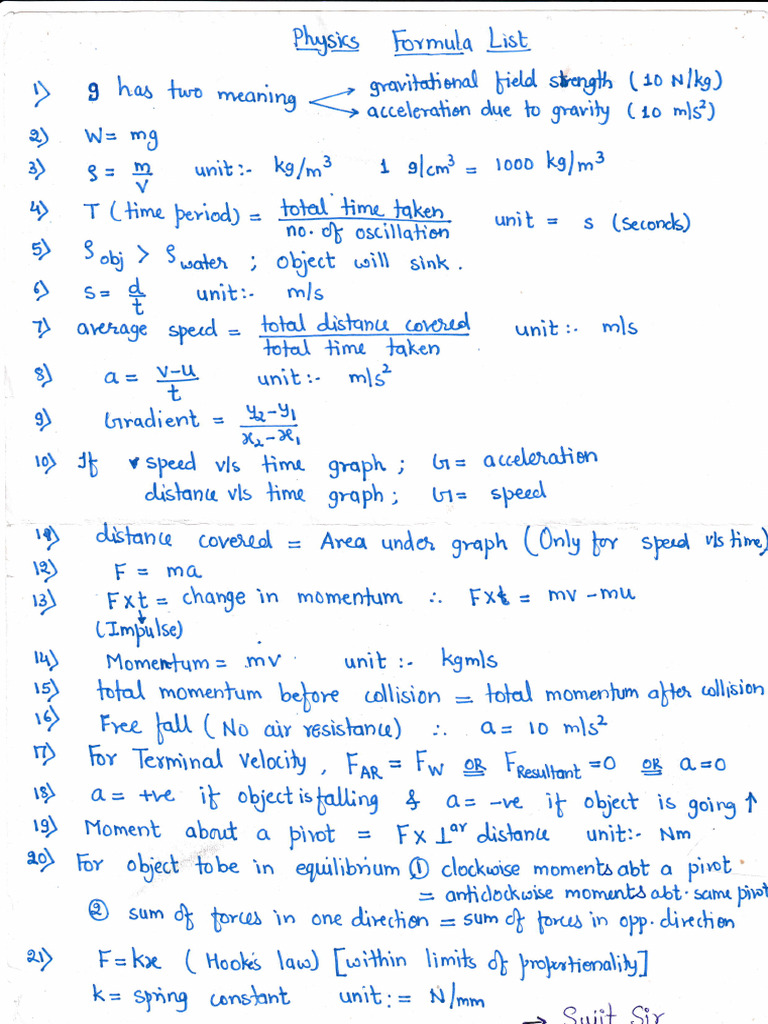 Physics Formula List
1) g has two meaning → gravitational field strength (10 N/kg)
→ acceleration due to gravity (10 m/s²)
2) W = mg
3) ρ = m/V unit:- kg/m³ 1 g/cm³ = 1000 kg/m³
4) T (time period) = total time taken / no. of oscillation unit = s (seconds)
5) ρobj > ρwater ; object will sink.
6) s = d/t unit:- m/s
7) average speed = total distance covered / total time taken unit:- m/s
8) a = v-u / t unit:- m/s²
9) Gradient = y₂-y₁ / x₂-x₁
10) If speed v/s time graph ; G = acceleration
distance v/s time graph ; G = speed
11) distance covered = Area under graph (Only for speed v/s time)
12) F = ma
13) F x t = change in momentum ∴ F x t = mv - mu
(Impulse)
14) Momentum = mv unit :- kgm/s
15) total momentum before collision = total momentum after collision
16) Free fall (No air resistance) ∴ a = 10 m/s²
17) For Terminal Velocity, F_AR = F_W OR F_Resultant = 0 OR a = 0
18) a = +ve if object is falling & a = -ve if object is going ↑
19) Moment about a pivot = F x ⊥ar distance unit:- Nm
20) For object to be in equilibrium ① clockwise moments abt a pivot
= anticlockwise moments abt. same pivot
② sum of forces in one direction = sum of forces in opp. direction
21) F = kx (Hooke's law) [within limits of proportionality]
k = spring constant unit := N/mm
→ Sujit Sir